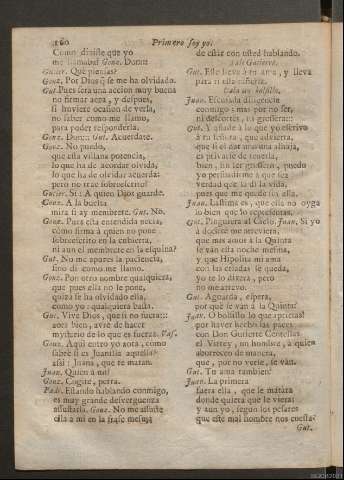 160
Primero soy yo.
Como dixiste que yo
me llamaba? Gonz. Donn:
Gutier. Què piensas?
Gonz. Por Dios q̃ se me ha olvidado.
Gut. Pues serà una accion muy buena
no firmar aora, y despues,
si huviere ocasion de verla,
no saber como me llamo,
para poder responderla.
Gonz. Donn:: Gut. Acuerdate.
Gonz. No puedo,
que esta villana potencia,
lo que ha de acordar olvida,
lo que ha de olvidar acuerda:
pero no trae sobrescrito?
Gutier. Si: A quien Dios guarde.
Gonz. A la buelta
mira si ay membrete. Gut. No.
Gonz. Pues esta entendida necia,
còmo firma à quien no pone
sobrescrito en la cubierta,
ni aun el membrete en la esquina?
Gut. No me apures la paciencia,
sino di como me llamo.
Gonz. Pon otro nombre qualquiera,
que pues ella no le pone,
quizà se ha olvidado ella,
como yo: qualquiera basta.
Gut. Vive Dios, que si no fuera::
aora bien, avrè de hacer
mysterio de lo que es fuerza. Vase.
Gonz. Aqui entro yo aora, como
sabrè si es Juanilla aquella?
assi: Juana, que te matan.
Juan. Quien à mi?
Gonz. Cogite, perra.
Juan. Estando hablando conmigo,
es muy grande desverguenza
assustarla. Gonz. No me assuste
ella à mi en la frase mesma
de estar con usted hablando.
Sale Gutierre.
Gut. Este lleva à tu ama, y lleva
para ti esta niñeria.
Dala un bolsillo.
Juan. Escusada diligencia
conmigo; mas por no ser,
ni descortès, ni grossera::
Gut. Y añade à lo que yo escrivo
à tu señora, que advierta,
que si el dar una una alhaja,
es privarse de tenerla,
bien,
yo persuadirme à que sea
verdad que la di la vida,
pues que me quede sin ella.
Juan. Lastima es, que ella no oyga
lo bien que lo representas.
Gut. Pluguiera al Cielo. Juan. Si yo
à decirte me atreviera,
que mis amos à la Quinta
se van esta noche mesma,
y que Hipolita mi ama
con las criadas se queda,
yo te lo dixera, pero
no me atrevo.
Gut. Aguarda, espera,
por què se vàn à la Quinta?
Juan. O bolsillo lo que aprietas!
por haver hecho las paces
con Don Gutierre Centellas
el Virrey, un hombre, à quien
aborrecen de manera,
que, por no verle, se vàn.
Gut. Tu ama tambien?
Juan. La primera
fuera ella, que le matàra
donde quiera que le viera;
y aun yo, segun los pesares
que este mal hombre nos cuesta.
Gut.